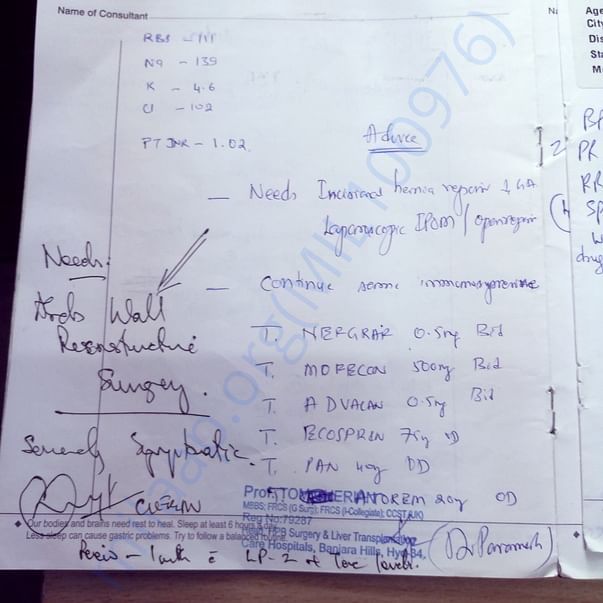 Name of Consultant
RBS -
Na - 139
K - 4.6
Cl - 102
PT INR - 1.02
Advice
— Needs Incisional hernia repair
Laparoscopic IPOM / open repair
— Continue same
Needs:
Abdo Wall
Reconstructive
Surgery.
Severely Symptomatic.
T. 0.5mg Bid
T. MOFECON 500mg Bid
T. ADVACAN 0.5mg Bid
T. ECOSPRIN 75mg OD
T. PAN 40mg OD
20mg OD
Prof. TOM CHERIAN
MBBS; FRCS (G Surg); FRCS (I-Collegiate); CCST (UK)
Reg No: 79287
HPB Surgery & Liver Transplantation
Care Hospitals, Banjara Hills, Hyd-34.
Our bodies and brains need rest to heal. Sleep at least 6 hours a day.
Less sleep can cause gastric problems. Try to follow a balanced routine.
Review - 1 month LP-2 Tac levels.
(Dr Paramesh)
(MIL1100976)
Age
City
Dis
Sta
M
BP
PR
RR
SP
drug